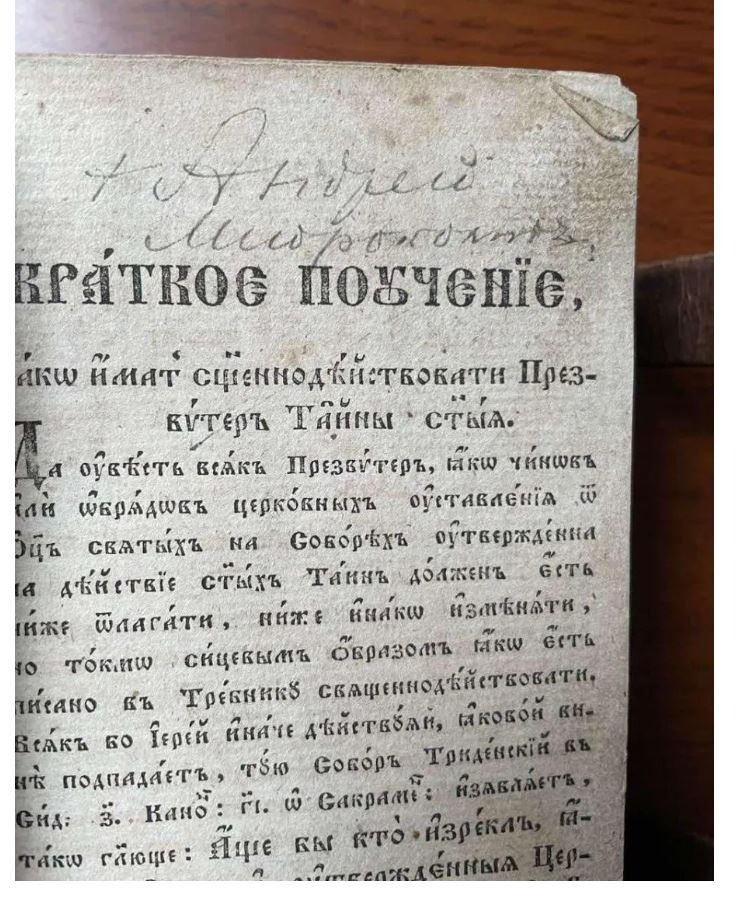 + Андрей
КРА́ТКОЕ ПОꙊЧЕ́НЇЕ,
ꙗ́кѡ и҆́мат̾ сщ҃еннодѣ́йствовати През-
вѵ́теръ Та̑йны ст҃ы́ѧ.
Да оу҆вѣ́сть всѧ́къ Презвѵ́теръ, ꙗ҆́кѡ чи́нѡвъ
и҆лѝ ѡ҆брѧ́дѡвъ церко́вныхъ оу҆ставле́нїѧ ѿ
Ѻ҆ц҃ъ свѧты́хъ на Собо́рѣхъ оу҆твержде́нна
на дѣ́йствїе ст҃ы́хъ Та́инъ до́лженъ є҆́сть
ни́же ѿлага́ти, ни́же и҆на́кѡ и҆змѣнѧ́ти,
но то́кмѡ си́цевымъ ѻ҆́бразомъ ꙗ҆́кѡ є҆́сть
пи́сано въ Тре́бникꙋ свѧщеннодѣ́йствовати.
Всѧ́къ бо І҆ере́й и҆на́че дѣ́йствꙋѧй, ꙗ҆ково́й ви-
нѣ̀ подпада́етъ, то́ю Собо́ръ Триде́нскїй въ
Си́д: з҃. Кано́: г҃і. ѡ҆ Сакраме́: и҆зѧвлѧ́етъ,
та́кѡ гл҃юще: А҆́ще бы кто̀ и҆зре́клъ, ꙗ҆́-
оу҆твержде́нныѧ Цер-